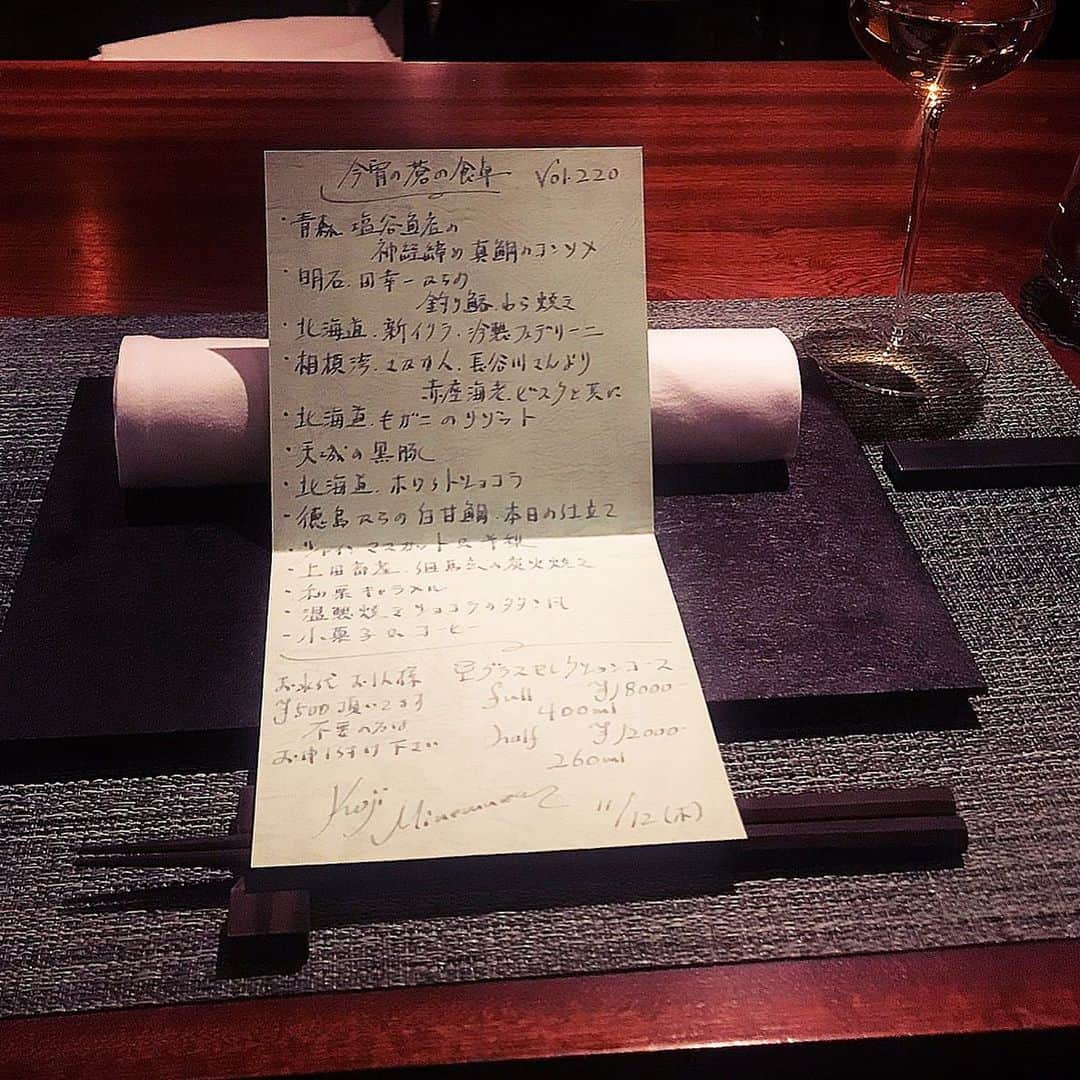 今宵の蒼の食卓 Vol.220
・青森 塩谷魚店の
神経締め 真鯛のコンソメ
・明石.田幸一
釣り鰆.わら焼き
・北海道.新イクラ.冷製フェデリーニ
・相模湾.さかな人.長谷川さんより
赤座海老.ビスクと共に
・北海道.毛ガニのリゾット
・天城の黒豚
・北海道.ホワイトチョコラ
・徳島 白甘鯛.本日の仕立て
・シャインマスカット
・上田畜産.但馬玄の炭火焼き
・和栗キャラメル
・温製焼き
・小菓子&コーヒー
お水代 お1人様
¥500頂いてます
不要の方は
お申し付け下さい
グラスセレクションコース
full ¥18000-
400ml
half ¥12000-
260ml
Koji Minemura
11/12(木)